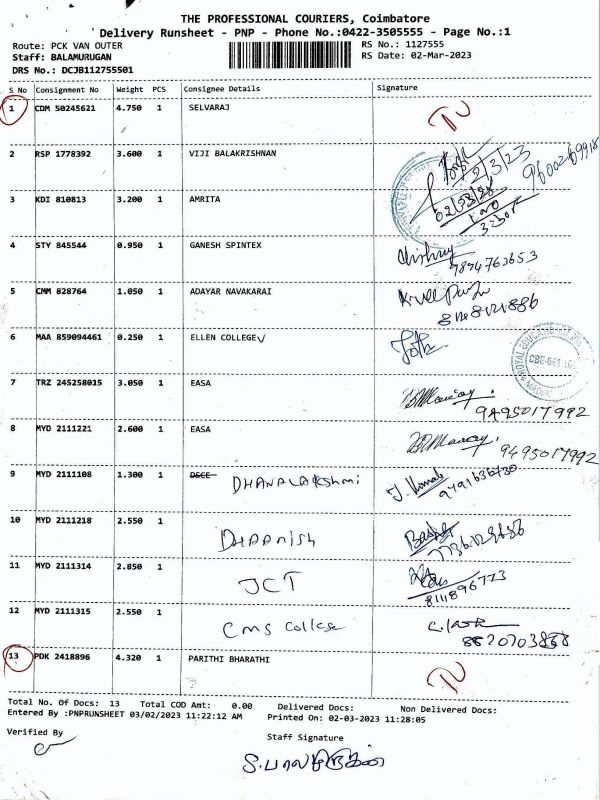 THE PROFESSIONAL COURIERS, Coimbatore
Delivery Runsheet - PNP - Phone No.:0422-3505555 - Page No.:1
Route: PCK VAN OUTER RS No.: 1127555
Staff: BALAMURUGAN RS Date: 02-Mar-2023
DRS No.: DCJB112755501
S No Consignment No Weight PCS Consignee Details Signature
1 CDM 50245621 4.750 1 SELVARAJ
2 RSP 1778392 3.600 1 VIJI BALAKRISHNAN 2/3/23
3 KDI 810813 3.200 1 AMRITA 02/03/23
4 STY 845544 0.950 1 GANESH SPINTEX
7894763653
5 CMM 828764 1.050 1 ADAYAR NAVAKARAI
6 MAA 859094461 0.250 1 ELLEN COLLEGE
7 TRZ 245258015 3.050 1 EASA
9495017992
8 MYD 2111221 2.600 1 EASA
9495017992
9 MYD 2111108 1.300 1 DSCE DHANALAKSHMI
9791636730
10 MYD 2111218 2.550 1 DHAANISH
11 MYD 2111314 2.850 1 JCT
8111896773
12 MYD 2111315 2.550 1 CMS College
13 PDK 2418896 4.320 1 PARITHI BHARATHI
Total No. Of Docs: 13 Total COD Amt: 0.00 Delivered Docs: Non Delivered Docs:
Entered By :PNPRUNSHEET 03/02/2023 11:22:12 AM Printed On: 02-03-2023 11:28:05
Verified By Staff Signature
S.பாலமுருகன்